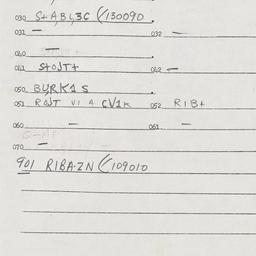 030 S+ABL3C (/130090.
031 — 032 —
040 —
041 S+OJT+ 042 —
050 BURK1S
051 ROJT V1 A CV1K 052 RIB+
060 — 061 —
070 —
901 RIBA-ZN (/109010